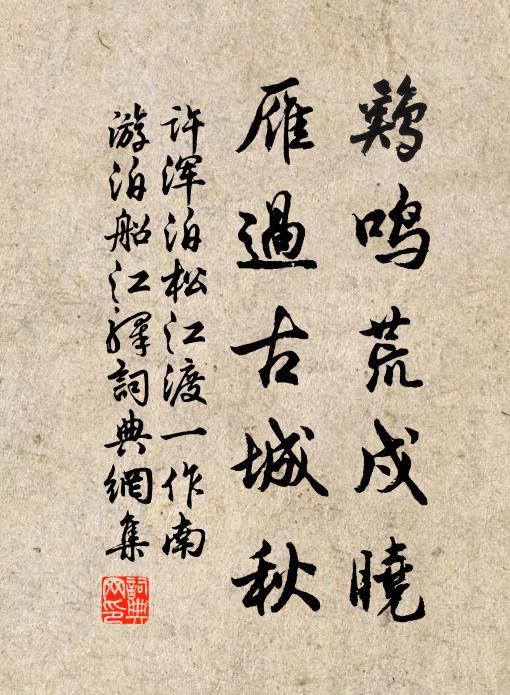 鷄鳴荒戍曉
雁過古城秋
许浑泊松江渡一作南
游泊船江驛詞典網集
詞典网印